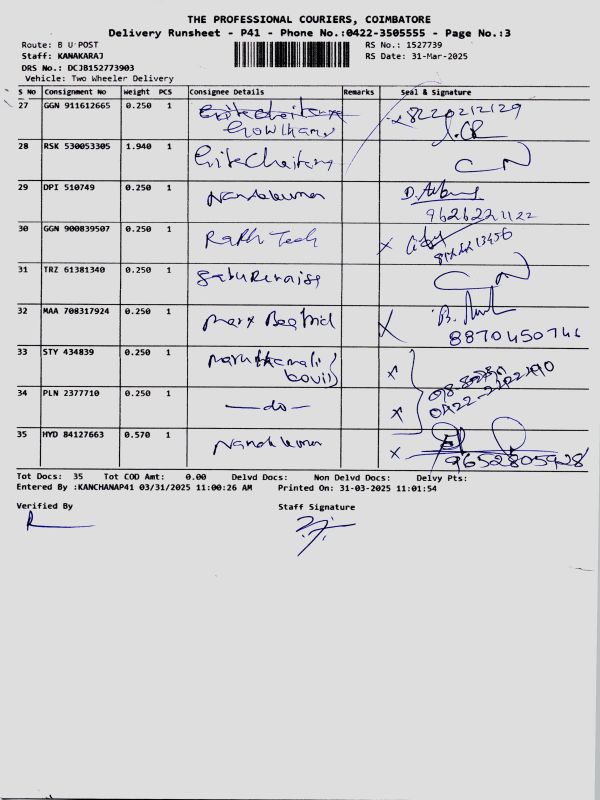 THE PROFESSIONAL COURIERS, COIMBATORE
Delivery Runsheet - P41 - Phone No.:0422-3505555 - Page No.:3
Route: B U POST
RS No.: 1527739
Staff: KANAKARAJ
RS Date: 31-Mar-2025
DRS No.: DCJB152773903
Vehicle: Two Wheeler Delivery
S No Consignment No Weight PCS Consignee Details Remarks Seal & Signature
27 GGN 911612665 0.250 1 8220212129
Gowtham
28 RSK 530053305 1.940 1
29 DPI 510749 0.250 1 Nandakumar
9626221122
30 GGN 900839507 0.250 1 Tech
31 TRZ 61381340 0.250 1
32 MAA 708317924 0.250 1
8870450746
33 STY 434839 0.250 1
34 PLN 2377710 0.250 1 —do—
35 HYD 84127663 0.570 1 Nandakumar
9652805928
Tot Docs: 35 Tot COD Amt: 0.00 Delvd Docs: Non Delvd Docs: Delvy Pts:
Entered By :KANCHANAP41 03/31/2025 11:00:26 AM Printed On: 31-03-2025 11:01:54
Verified By Staff Signature